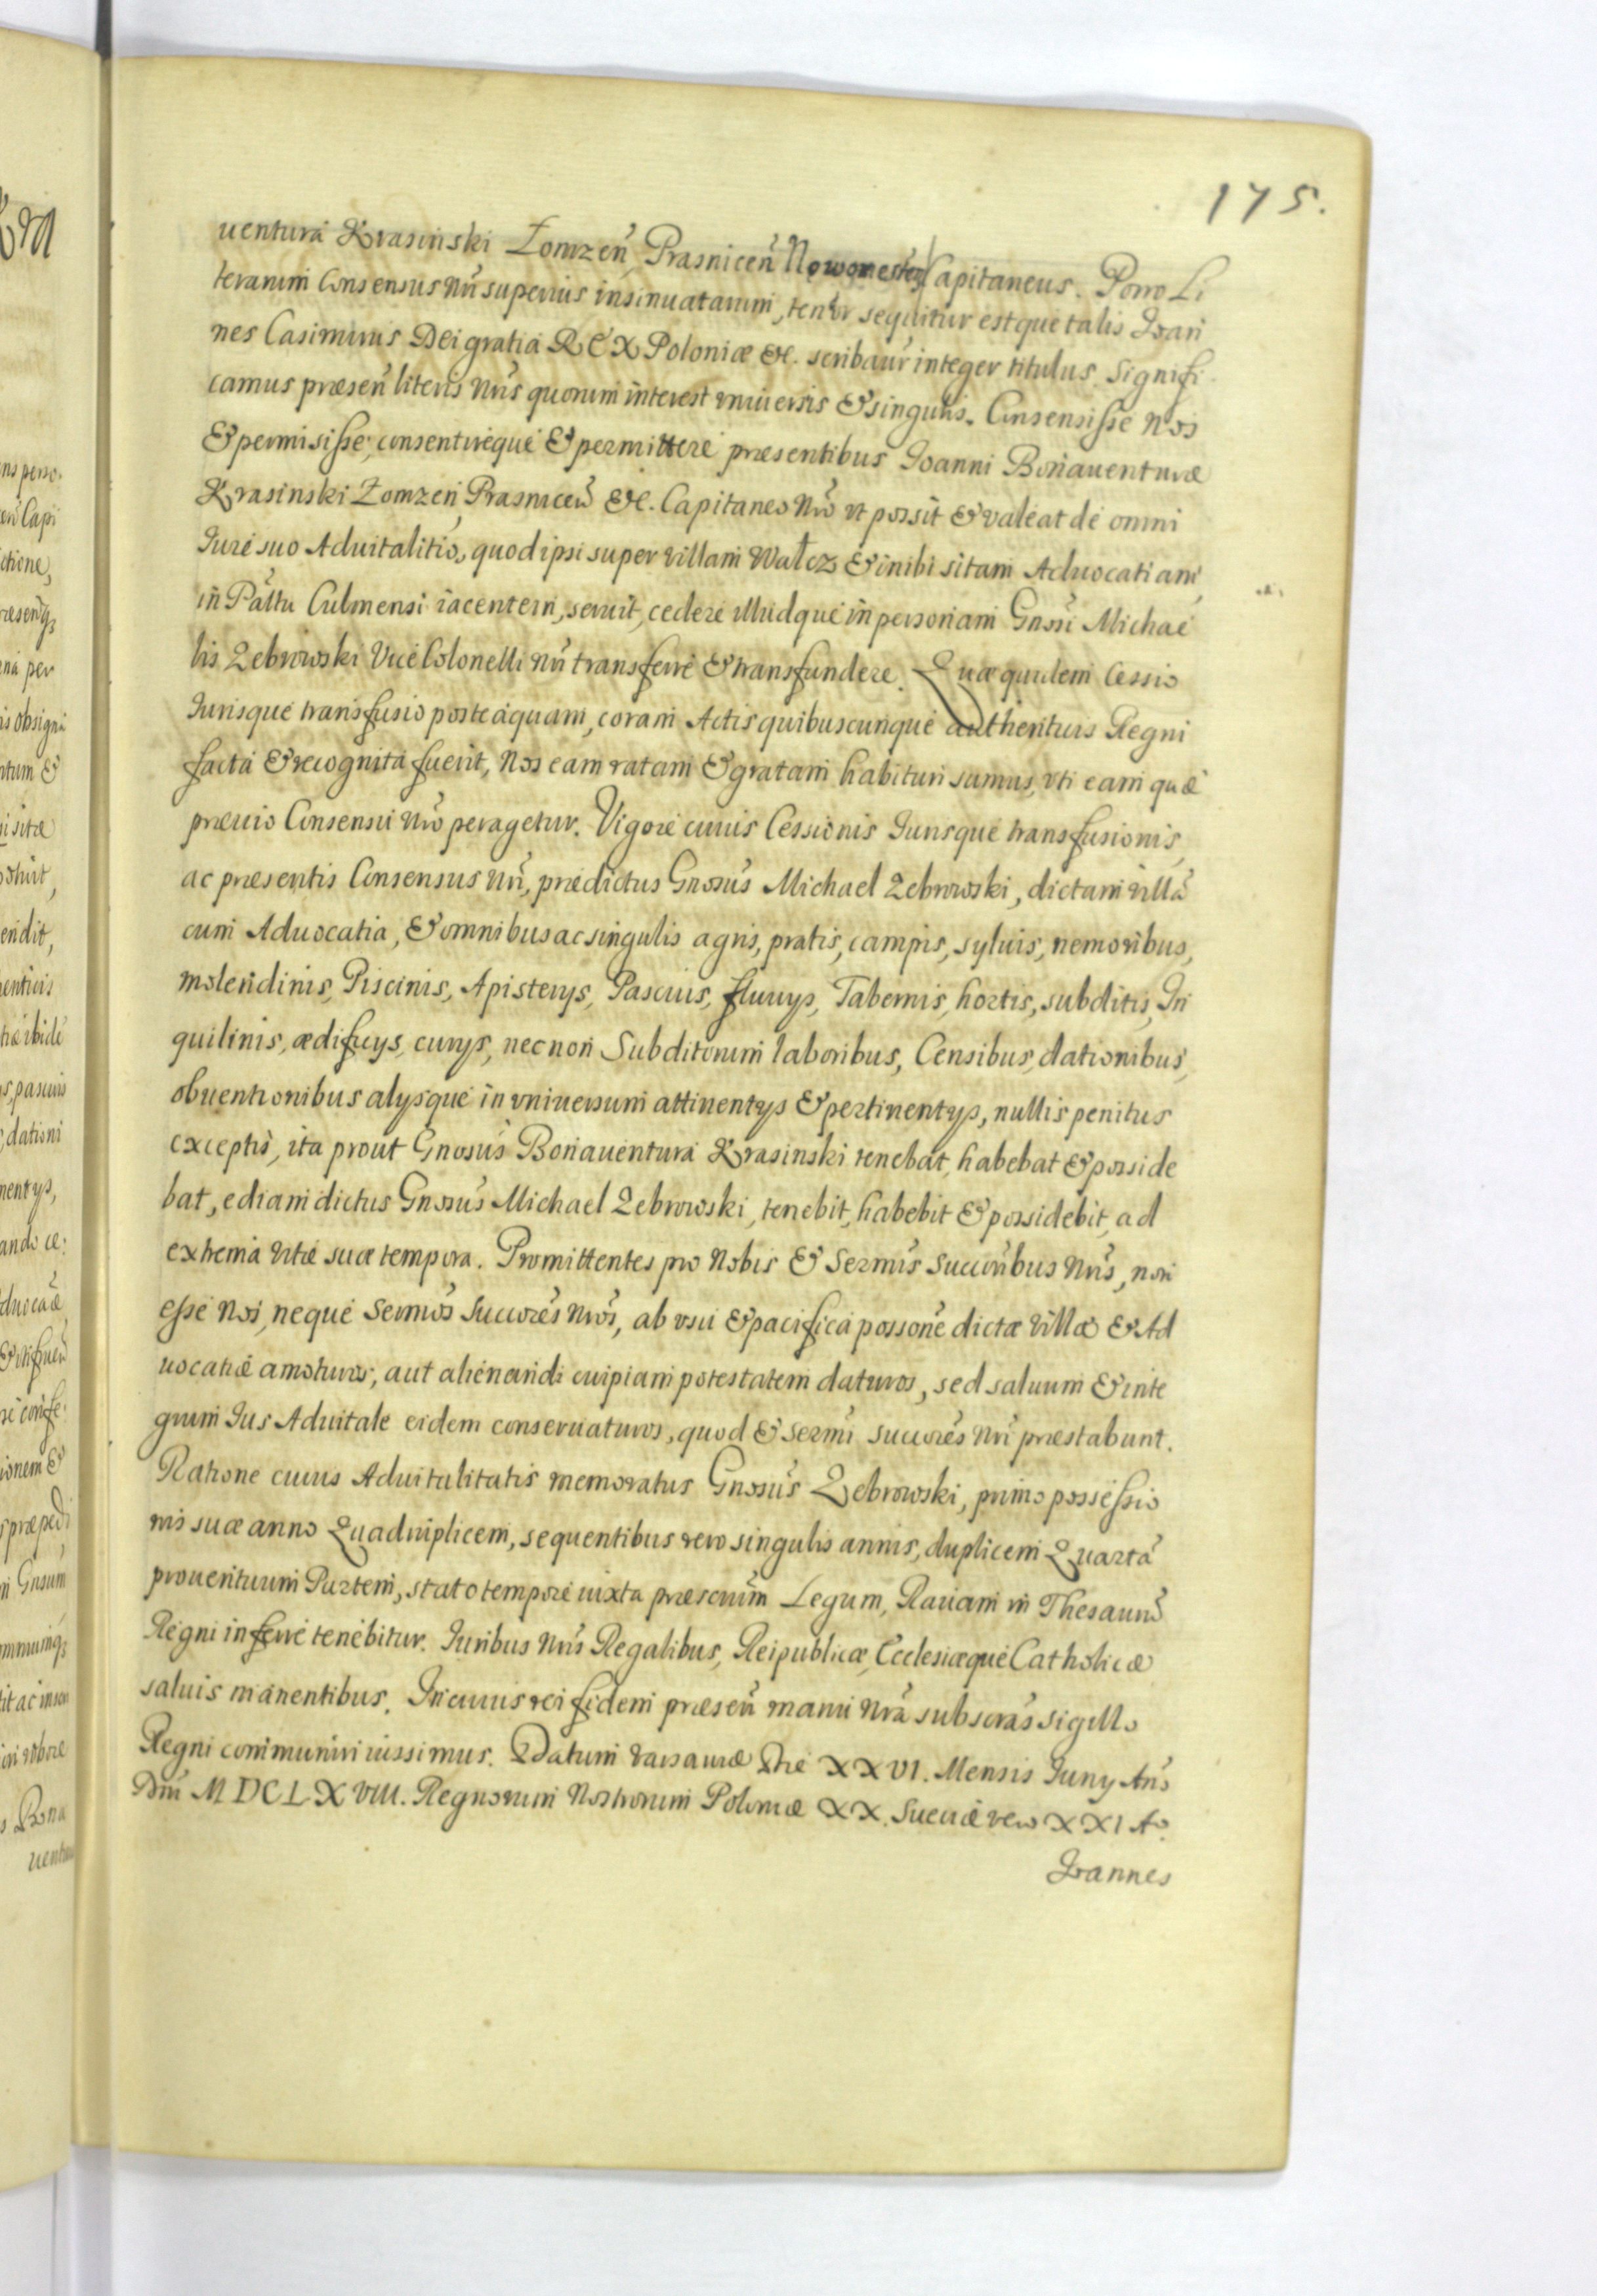 175.
uentura Krasinski Łomzen̄ Prasnicen̄ Nowomesten̄ Capitaneus. Porro Li
terarum Consensus nr̄i superius insinuatarum, tenor sequitur estque talis Ioan
nes Casimirus Dei gratia REX Poloniæ &c. scribatur integer titulus. Signifi
camus præsen̄ literis nr̄is quorum interest vniuersis & singulis. Consensisse Nos
& permisisse, consentireque & permittere præsentibus Ioanni Bonauenturæ
Krasinski Łomzen̄ Prasnicen̄ &c. Capitaneo nr̄o vt possit & valeat de omni
Iure suo Aduitalitio, quod ipsi super villam Wałcz & inibi sitam Aduocatiam,
in Pal̄tu Culmensi iacentem, seruit, cedere illudque in personam Gnosi Michae
lis Zebrowski Vice Colonelli nr̄i transferre & transfundere. Quæ quidem Cessio
Iurisque transfusio posteaquam, coram Actis quibuscunque authenticis Regni
facta & recognita fuerit, Nos eam ratam & gratam habituri sumus, vti eam quæ
præuio Consensu nr̄o peragetur. Vigore cuius Cessionis Iurisque transfusionis,
ac præsentis Consensus nr̄i, prædictus Gnosus Michael Zebrowski, dictam villā
cum Aduocatia, & omnibus ac singulis agris, pratis, campis, syluis, nemoribus,
molendinis, Piscinis, Apisterys, Pascuis, fluuys, Tabernis, hortis, subditis, In
quilinis, ædificys, curys, necnon Subditorum laboribus, Censibus, dationibus,
obuentionibus alysque in vniuersum attinentys & pertinentys, nullis penitus
exceptis, ita prout Gnosus Bonauentura Krasinski tenebat, habebat & posside
bat, ediam dictus Gnosus Michael Zebrowski, tenebit, habebit & possidebit, ad
extrema vitæ suæ tempora. Promittentes pro Nobis & Sermis Succoribus nr̄is, non
esse Nos, neque Sermos Succores nr̄os, ab vsu & pacifica possone dictæ villæ & Ad
uocatiæ amoturos, aut alienandi cuipiam potestatem daturos, sed saluum & inte
grum Ius Aduitale eidem conseruaturos, quod & Sermi Succores nr̄i præstabunt.
Ratione cuius Aduitalitatis memoratus Gnosus Zebrowski, primo possessio
nis suæ anno Quadruplicem, sequentibus vero singulis annis, duplicem Quartā
prouentuum Partem, stato tempore iuxta præscrium Legum, Rauam in Thesaurū
Regni inferre tenebitur. Iuribus nr̄is Regalibus, Reipublicæ, Ecclesiæque Catholicæ
saluis manentibus. In cuius rei fidem præsen̄ manu nr̄a subscras sigillo
Regni communiri iussimus. Datum Varsauiæ Die XXVI. Mensis Iuny Año
Dn̄i MDCLXVIII. Regnorum Nostrorum Poloniæ XX. Sueciæ vero XXI Ao.
Ioannes